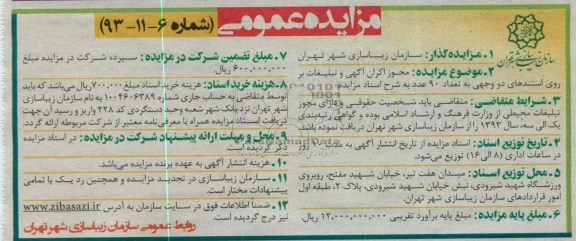 مزایده عمومی (شماره ۶-۱۱-۹۳)
سازمان زیباسازی شهر تهران
۱. مزایده‌گذار: سازمان زیباسازی شهر تهران
۲. موضوع مزایده: مجوز اکران آگهی و تبلیغات بر
روی استندهای دو وجهی به تعداد ۹۰ عدد به شرح اسناد مزایده
۳. شرایط متقاضی: متقاضی باید شخصیت حقوقی و دارای مجوز
تبلیغات محیطی از وزارت فرهنگ و ارشاد اسلامی بوده و گواهی رتبه‌بندی
یک الی سه، سال ۱۳۹۳ را از سازمان زیباسازی شهر تهران دریافت نموده باشد
۴. تاریخ توزیع اسناد: اسناد مزایده از تاریخ انتشار آگهی به مدت
در ساعات اداری (۸ الی ۱۶) توزیع می‌شود.
۵. محل توزیع اسناد: میدان هفت تیر، خیابان شهید مفتح، روبروی
ورزشگاه شهید شیرودی، نبش خیابان شهید شیرودی، پلاک ۲، طبقه اول
امور قراردادهای سازمان زیباسازی شهر تهران.
۶. مبلغ پایه مزایده: مبلغ پایه برآورد تقریبی ۱۲,۰۰۰,۰۰۰,۰۰۰ ریال.
۷. مبلغ تضمین شرکت در مزایده: سپرده شرکت در مزایده مبلغ
۶۰۰,۰۰۰,۰۰۰ ریال.
۸. هزینه خرید اسناد: هزینه خرید اسناد مبلغ ۷۰۰,۰۰۰ ریال می‌باشد که باید
توسط متقاضی به حساب جاری شماره ۱۰۰۴۶۰۶۳۸۹ به نام سازمان زیباسازی
شهر تهران نزد بانک شهر شعبه وحید دستگردی کد ۲۲۸ واریز و رسید آن جهت
دریافت اسناد مزایده همراه با معرفی‌نامه معتبر از شرکت مربوطه ارائه گردد.
۹. محل و مهلت ارائه پیشنهاد شرکت در مزایده: در اسناد مزایده
ذکر گردیده است.
۱۰. هزینه انتشار آگهی به عهده برنده مزایده می‌باشد.
۱۱. سازمان زیباسازی در تجدید مزایده و همچنین رد یک یا تمامی
پیشنهادات مختار است.
۱۲. ضمنا اطلاعات فوق در سایت سازمان به آدرس www.zibasazi.ir
نیز درج گردیده است.
روابط عمومی سازمان زیباسازی شهر تهران